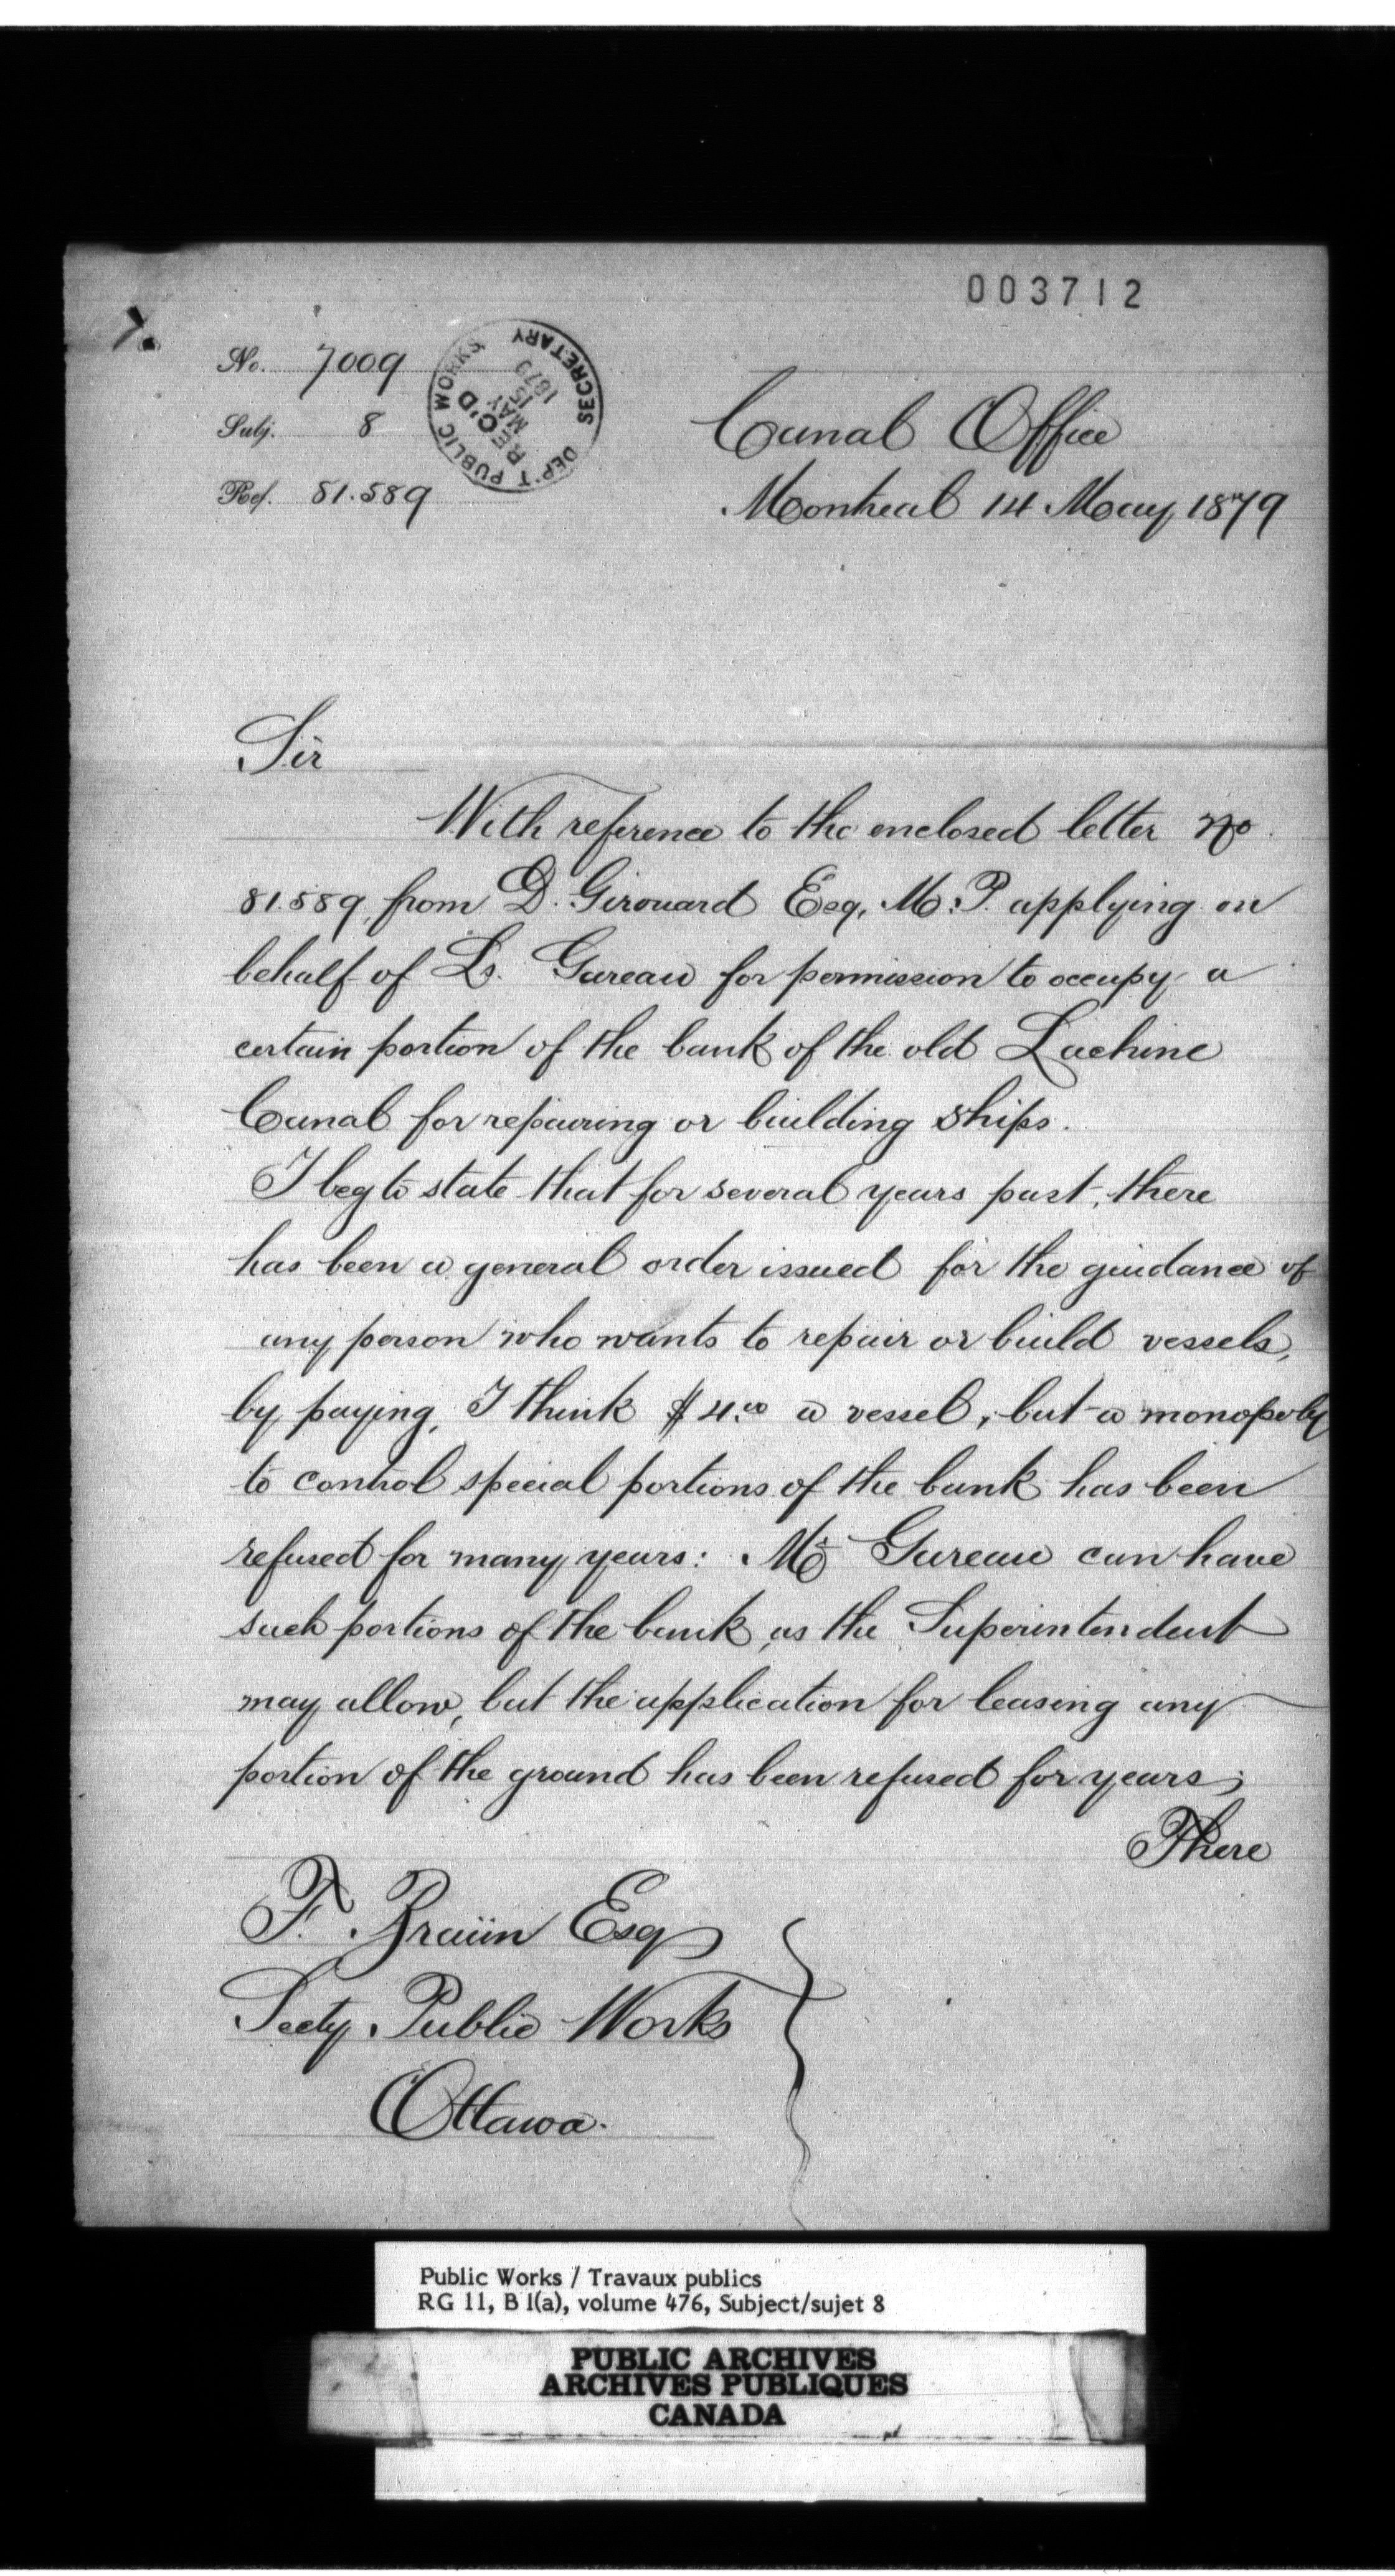 003712
No. 7009
Subj. 8
Ref. 81.589
DEP'T PUBLIC WORKS SECRETARY
REC'D
MAY
15
1879
Canal Office
Montreal 14 May 1879
Sir
With reference to the enclosed letter No
81.589, from D. Girouard Esq. M.P. applying on
behalf of Ls. Gareau for permission to occupy a
certain portion of the bank of the old Lachine
Canal for repairing or building ships.
I beg to state that for several years past, there
has been a general order issued for the guidance of
any person who wants to repair or build vessels,
by paying, I think $4.00 a vessel, but a monopoly
to control special portions of the bank has been
refused for many years: Mr Gareau can have
such portions of the bank, as the Superintendent
may allow, but the application for leasing any
portion of the ground has been refused for years;
There
F. Braün Esq
Secty Public Works
Ottawa.
Public Works / Travaux publics
RG 11, B 1(a), volume 476, Subject/sujet 8
PUBLIC ARCHIVES
ARCHIVES PUBLIQUES
CANADA